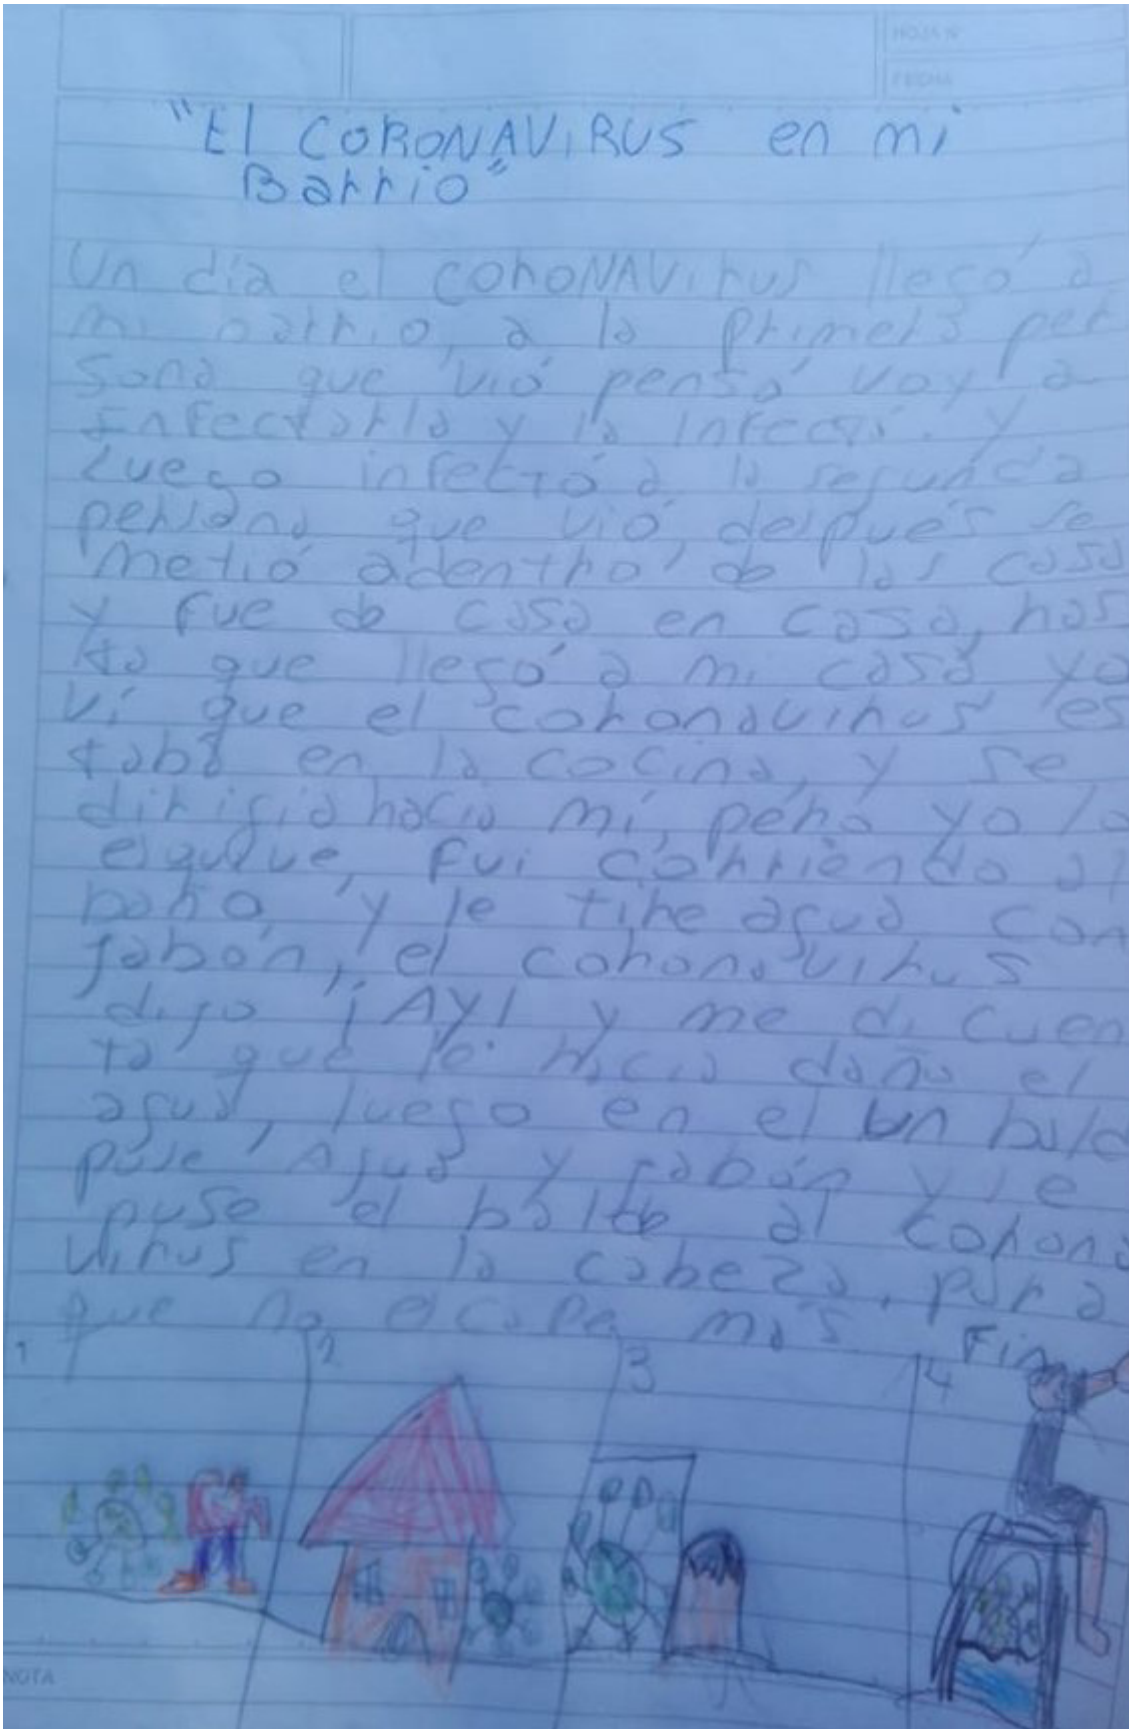 HOJA Nº
FECHA
"El CORONAVIRUS en mi
Barrio"
Un día el coroNAVirus llegó a
mi barrio, a la primera per
sona que vió pensó voy a
Infectarla y la infectó. y
Luego infectó a la segunda
persona que vió, después se
metió adentro de las casa
y fue de casa en casa, has
ta que llegó a mi casa yo
ví que el coronavirus es
taba en la cocina, y se
dirigía hacia mí, pero yo lo
esquive, fui corriendo al
baño, y le tire agua con
jabón, el coronavirus
dijo ¡AY! y me di cuen
ta que le hacia daño el
agua, luego en el un bald
puse Agua y jabón y le
puse el balde al corona
virus en la cabeza, para
que no escape más.
Fin
1 2 3 4
NOTA